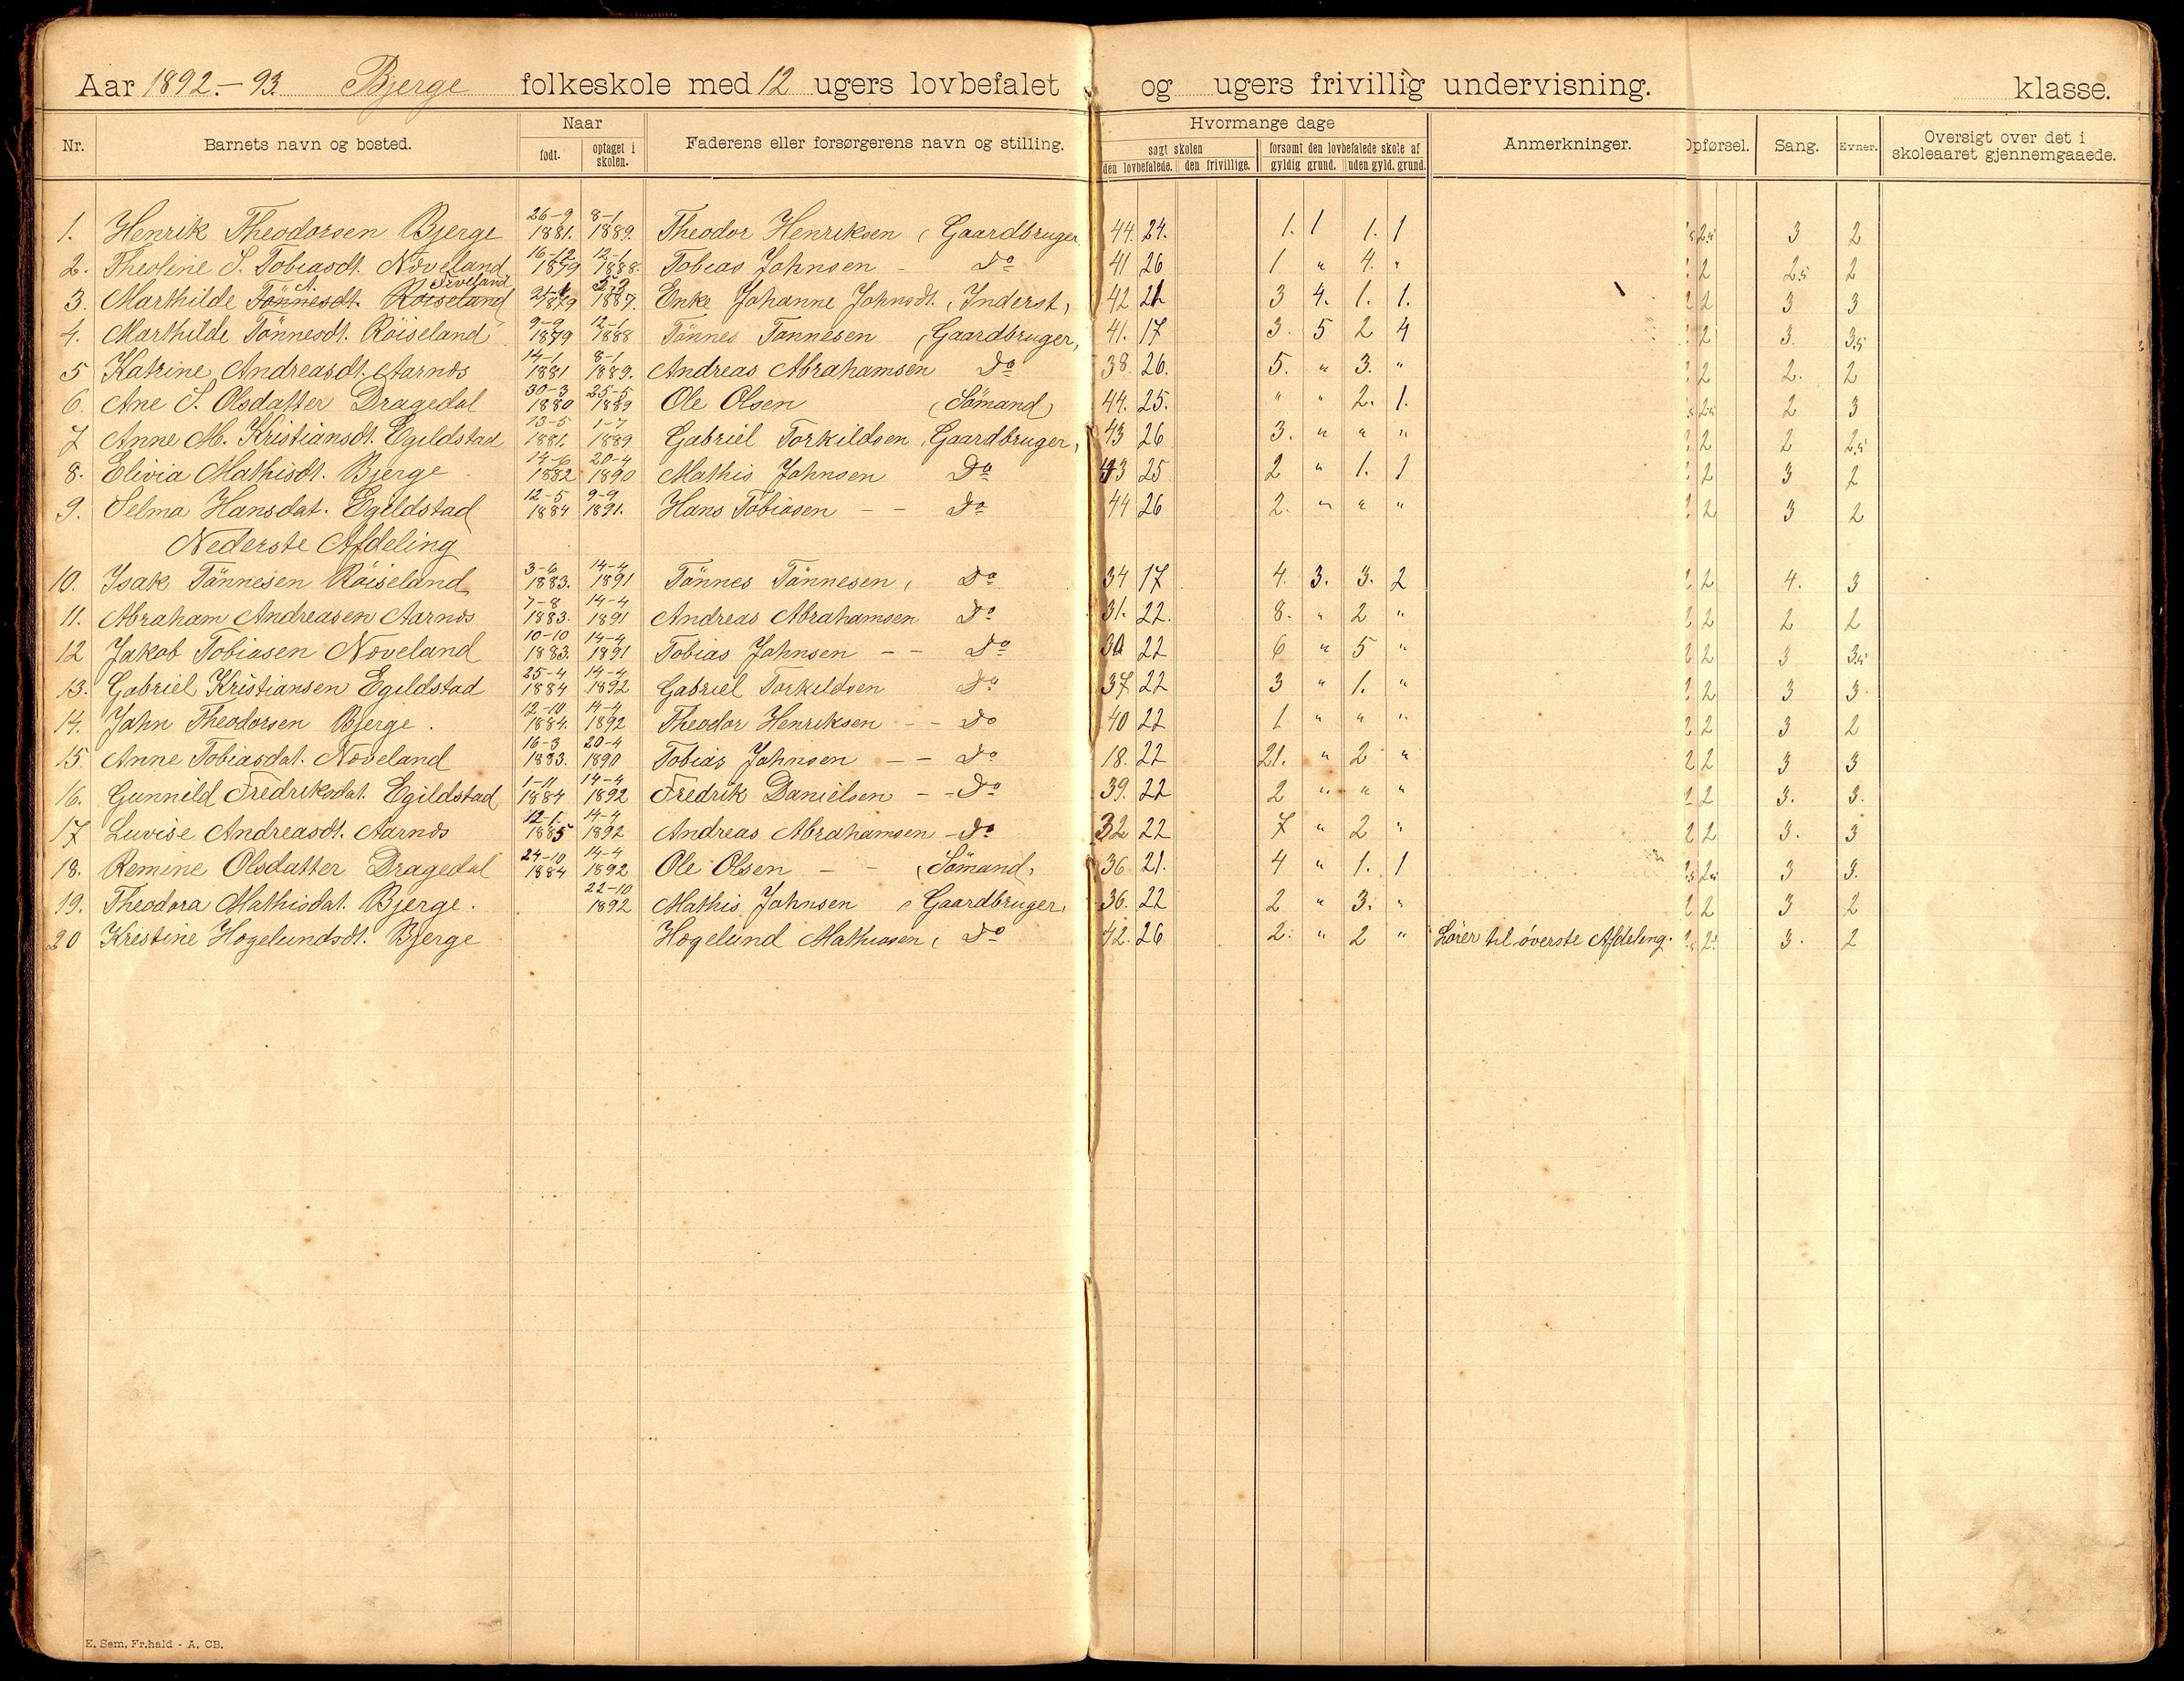 Aar 1892.-93. Bjerge folkeskole med 12 ugers lovbefalet og ugers frivillig undervisning. klasse.
Nr. Barnets navn og bosted. Naar født. optaget i skolen. Faderens eller forsørgerens navn og stilling. Hvormange dage søgt skolen den lovbefalede. den frivillige. forsømt den lovbefalede skole af gyldig grund. uden gyld. grund. Anmerkninger. Opførsel. Sang. Evner. Oversigt over det i skoleaaret gjennemgaaede.
1. Henrik Theodorsen Bjerge 26-9 1881. 8-1 1889. Theodor Henriksen (Gaardbruger 44. 24. 1. 1 1. 1 2.5 3 2
2. Theoline S. Tobiasdt. Növeland 16-12 1879 12-1 1888. Tobias Johnsen - Do 41 26 1 " 4. " 2 2 2.5 2
3. Marthilde Tönnesdt. Röiseland 1879 1887. Enke Johanne Johnsdt. (Inderst) 42 21 3 4. 1. 1. 2 2 3 3
4. Marthilde Tönnesdt. Röiseland 9-9 1879 12-1 1888 Tönnes Tönnesen (Gaardbruger, 41. 17 3. 5 2 4 2 2 3. 3.5
5 Katrine Andreasdt. Aarnæs 14-1 1881 8-1 1889. Andreas Abrahamsen Do 38. 26. 5. " 3. " 2 2 2. 2
6. Ane S. Olsdatter Dragedal 30-3 1880 25-5 1889 Ole Olsen (Sömand) 44. 25. " " 2. 1. 2.5 2 3
7 Anne M. Kristiansdt. Egildstad 13-5 1881. 1-7 1889 Gabriel Torkildsen (Gaardbruger, 43 26 3. " " " 2 2 2 2.5
8. Elivia Mathisdt. Bjerge 14-6 1882 20-4 1890 Mathis Johnsen Do 43 25 2 " 1. 1 2 2 3 2
9. Selma Hansdat. Egildstad 12-5 1884 9-9 1891. Hans Tobiasen - - Do 44 26 2. " " " 2 2 3 2
Nederste Afdeling
10. Isak Tönnesen Röiseland 3-6 1883. 14-4 1891 Tönnes Tönnesen, Do 34 17 4. 3. 3. 2 2 2 4. 3
11. Abraham Andreasen Aarnæs 7-8 1883. 14-4 1891 Andreas Abrahamsen Do 31. 22. 8. " 2 " 2 2 2 2
12 Jakob Tobiasen Növeland 10-10 1883. 14-4 1891 Tobias Johnsen - - Do 30 22 6 " 5 " 2 2 3 3.5
13. Gabriel Kristiansen Egildstad 25-4 1884 14-4 1892 Gabriel Torkildsen Do 37 22 3 " 1. " 2 2 3 3
14. John Theodorsen Bjerge. 12-10 1884. 14-4 1892 Theodor Henriksen - - Do 40 22 1 " " " 2 2 3 2
15. Anne Tobiasdat. Növeland 16-3 1883. 20-4 1890 Tobias Johnsen - - Do 18. 22 21. " 2 " 2 2 3 3
16. Gunnild Fredriksdat. Egildstad 1-11 1884 14-4 1892 Fredrik Danielsen - - Do 39. 22 2 " " " 2 2 3. 3.
17 Luvise Andreasdt. Aarnæs 12-1. 1885 14-4 1892 Andreas Abrahamsen - Do 32 22 7 " 2 " 2 2 3. 3
18. Remine Olsdatter Dragedal 24-10 1884 14-4 1892 Ole Olsen - - (Sömand, 36 21. 4 " 1. 1 2.5 3 3.
19. Theodora Mathisdat. Bjerge. 22-10 1892 Mathis Johnsen (Gaardbruger, 36. 22 2 " 3. " 2 2 3 2
20 Kristine Hogelundsdt. Bjerge Hogelund Mathiasen, Do 42. 26 2. " 2 " Hörer til överste Afdeling. 3. 2
E. Sem, Fr.hald - A. CB.